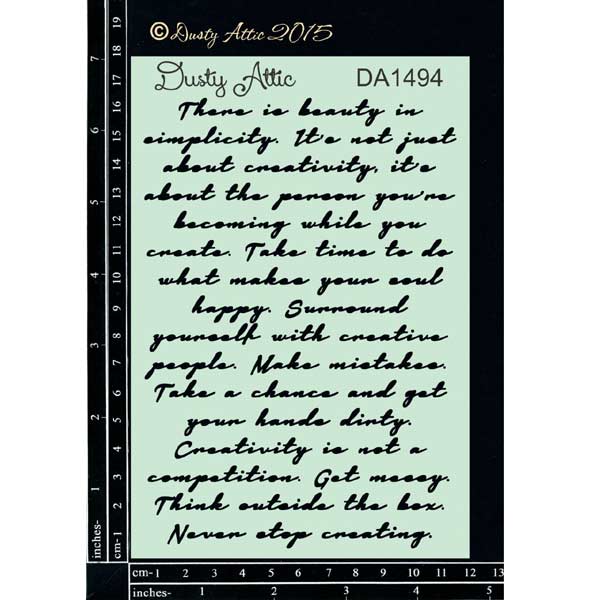 © Dusty Attic 2015
Dusty Attic DA1494
There is beauty in
simplicity. It's not just
about creativity, it's
about the person you're
becoming while you
create. Take time to do
what makes your soul
happy. Surround
yourself with creative
people. Make mistakes.
Take a chance and get
your hands dirty.
Creativity is not a
competition. Get messy.
Think outside the box.
Never stop creating.
inches- 1 2 3 4 5 6 7
cm-1 2 3 4 5 6 7 8 9 10 11 12 13 14 15 16 17 18 19
cm-1 2 3 4 5 6 7 8 9 10 11 12 13
inches- 1 2 3 4 5